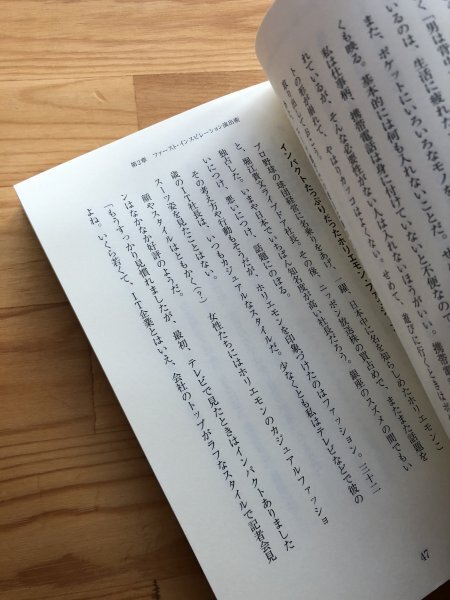 「男は背中
くも映る。
いるのは、生活に疲れた
また、ポケットにいろいろなモノ
れているが、基本的には何も入れないことだ。
私は仕事柄、携帯電話は身に付けていないと不便なので
トの形が崩れて、そんな必要性がない人は入れないほうがいい。携帯電
やはりカッコはよくない。せめて、遊びに行くときはポ
インパクトたっぷりだったホリエモン・ファッショ
プロ野球の球団経営に名乗りをあげ、一躍、日本中に名を知らしめたホリエモンこ
と、堀江貴文ライブドア社長。その後、ニッポン放送株の買占めで、またまた話題を
独占した。いまや日本でいちばん知名度が高い社長だろう。銀座のスズメの間でもい
いにつけ、悪しきにつけ、話題にのぼる。
その考え方や行動もそうだが、ホリエモンを印象づけたのはファッション。三十二
歳のIT社長は、いつもカジュアルなスタイルだ。少なくとも私はテレビなどで彼の
スーツ姿を見たことはない。
顔やスタイルはともかく(?)、女性たちにはホリエモンのカジュアルファッショ
ンはなかなか好評のようだ。
「もうすっかり見慣れましたが、最初、テレビで見たときはインパクトありました
よね。いくら若くて、IT企業とはいえ、会社のトップがラフなスタイルで記者会見
第2章 ファースト・インスピレーション演出術
47